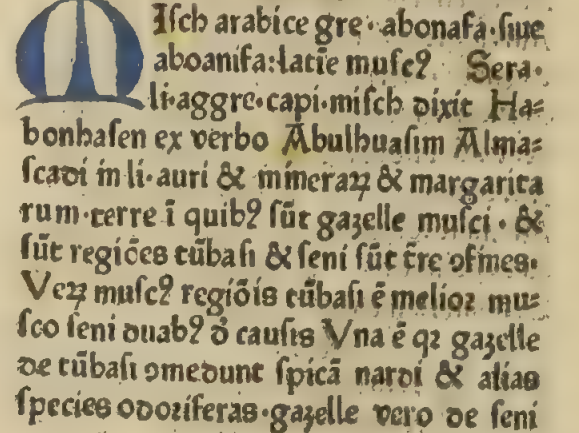 Miſch arabice gre· abonaſa·ſiue
aboanifa:latīe muſcꝰ Sera·
li·aggre·capi·miſch dixit Ha⸗
bonhaſen ex verbo Abulhuaſim Alma⸗
ſcadi in li·auri & mineraꝝ & margarita
rum·terre ī quibꝰ ſūt gazelle muſci · &
ſūt regiões tūbaſi & ſeni ſūt t̄re ꝯfines·
Veꝝ muſcꝰ regiōis tūbaſi ē melioꝛ mu⸗
ſco ſeni duabꝰ ð cauſis Vna ē qꝛ gazelle
de tūbaſi ꝯmedunt ſpicā nardi & alias
ſpecies odoꝛiferas·gazelle vero de ſeni